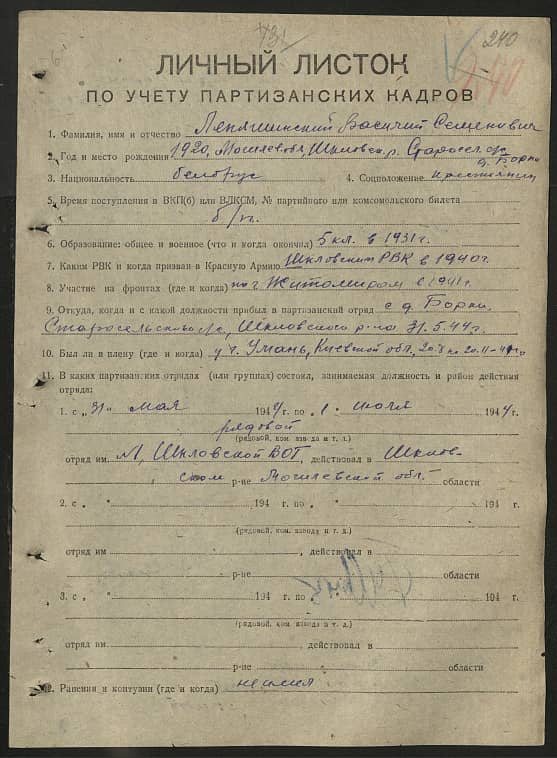 731
240
ЛИЧНЫЙ ЛИСТОК
ПО УЧЕТУ ПАРТИЗАНСКИХ КАДРОВ
1. Фамилия, имя и отчество Василий Семенович
2. Год и место рождения 1920, Могилевск., Шкловск. р. Старосел. с/с
д. Борки
3. Национальность белорус 4. Соцположение крестьянин
5. Время поступления в ВКП(б) или ВЛКСМ, № партийного или комсомольского билета
б/п.
6. Образование: общее и военное (что и когда окончил) 5 кл. в 1931 г.
7. Каким РВК и когда призван в Красную Армию Шкловским РВК в 1940 г.
8. Участие на фронтах (где и когда) под г. Житомиром в 1941 г.
9. Откуда, когда и с какой должности прибыл в партизанский отряд с д. Борки,
Старосельского с/с, Шкловского р-на 31.5.44 г.
10. Был ли в плену (где и когда) у г. Умань, Киевской обл.
11. В каких партизанских отрядах (или группах) состоял, занимаемая должность и район действия
отряда:
1. с „31“ мая 1944 г. по „1“ июля 1944 г.
рядовой
(рядовой, ком. взвода и т. д.)
отряд им. Шкловской ВОГ, действовал в Шклов-
ском р-не Могилевской обл. области
2. с „ “ 194 г. по „ “ 194 г.
(рядовой, ком. взвода и т. д.)
отряд им , действовал в
р-не области
3. с „ “ 194 г. по „ “ 194 г.
(рядовой, ком. взвода и т. д.)
отряд им , действовал в
р-не области
12. Ранения и контузии (где и когда) не имел